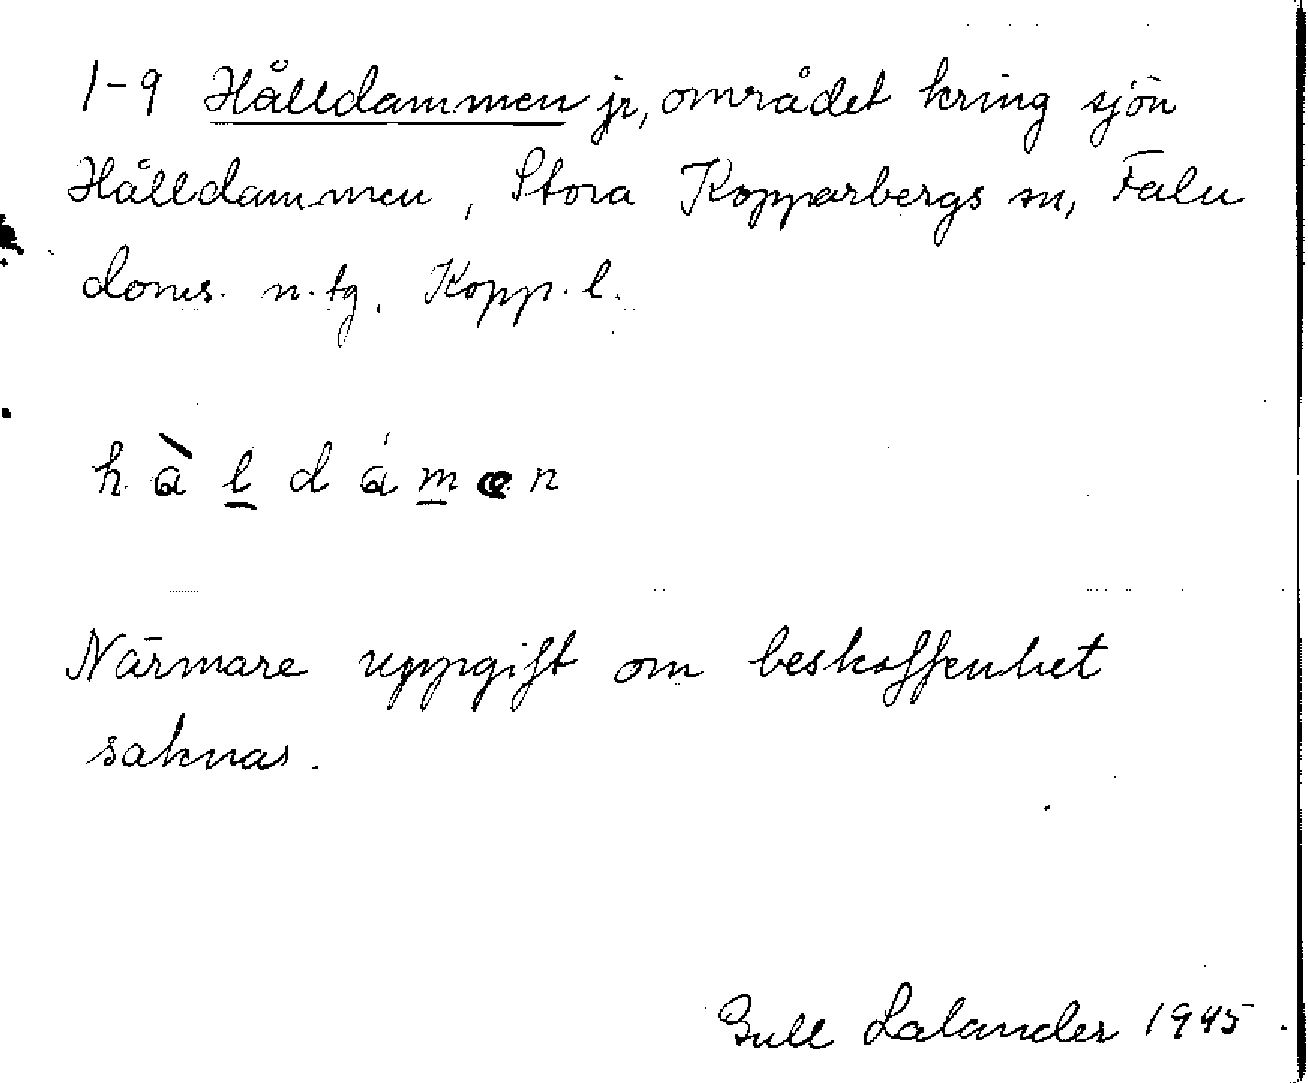 1-9 Hålldammen jr, området kring sjön
Hålldammen, Stora Kopparbergs sn, Falu
doms. n. tg. Kopp. l.
h å̀ l d á m e n
Närmare uppgift om beskaffenhet
saknas.
Gull Lalander 1945.